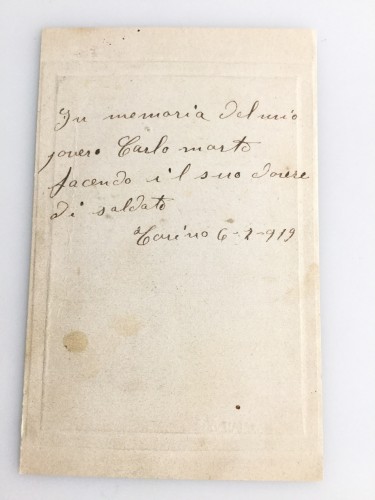 In memoria del mio
povero Carlo morto
facendo il suo dovere
di soldato
Torino 6-2-919